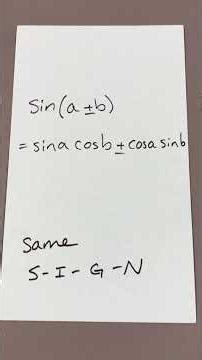 Sin(a ± b)
= sina cosb ± cosa sinb
Same
S-I-G-N